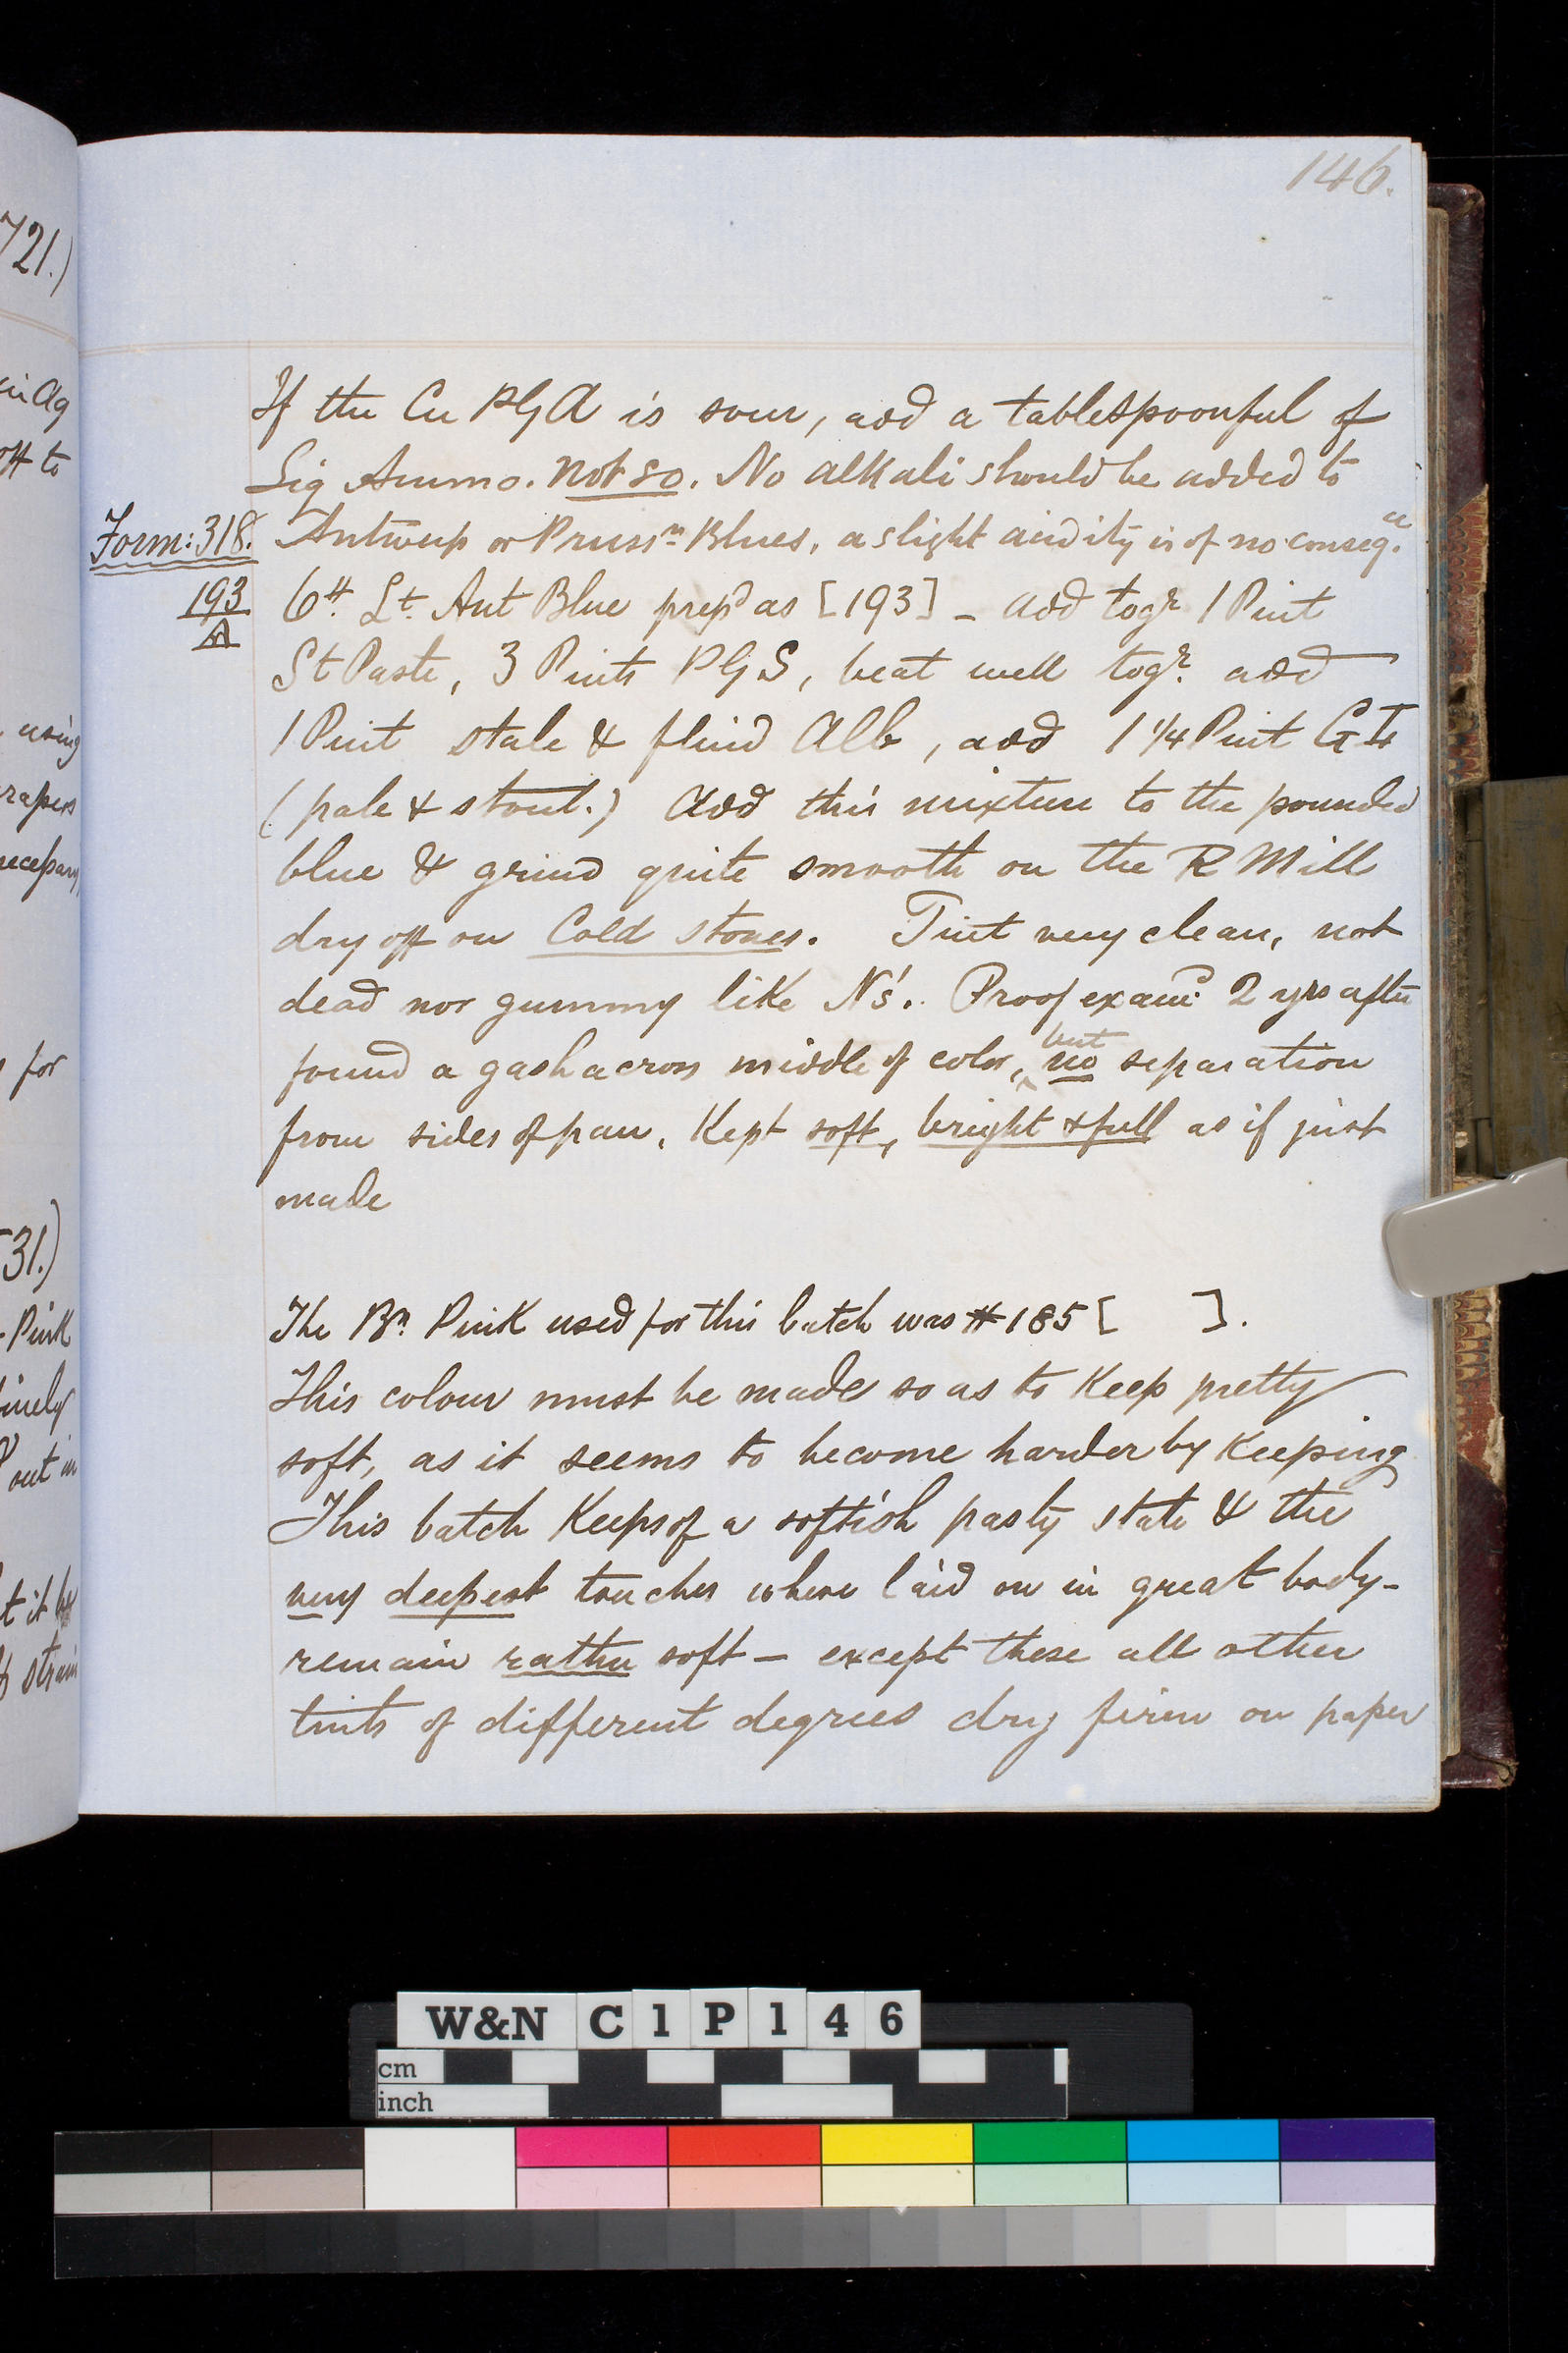 146.
If the Cu PGA is sour, add a tablespoonful of
Liq Ammo. not so. No alkali should be added to
Form: 318. Antwerp or Prussn Blues, a slight acidity is of no conseqce.
193 6 lt. Ant Blue prepd as [193] – add togr 1 Pint
A St Paste, 3 Pints PGS, beat well togr. add
1 Pint stale & fluid Alb, add 1 1/4 Pint GTr
(pale & stout.) Add this mixture to the pounded
blue & grind quite smooth on the R Mill
dry off on Cold stones. Tint very clean, not
dead nor gummy like N's. Proof examd. 2 yrs after
found a gash across middle of color, but no separation
from sides of pan. Kept soft, bright & full as if just
made
The Bn. Pink used for this batch was # 185 [ ].
This colour must be made so as to Keep pretty
soft, as it seems to become harder by Keeping
This batch Keeps of a softish pasty state & the
very deepest touches where laid on in great body –
remain rather soft – except these all other
tints of different degrees dry firm on paper
721.)
in Ag
to
using
rapers
necessary
for
31.)
Pink
finely
out in
t it be
strain
W&N C1P146
cm
inch